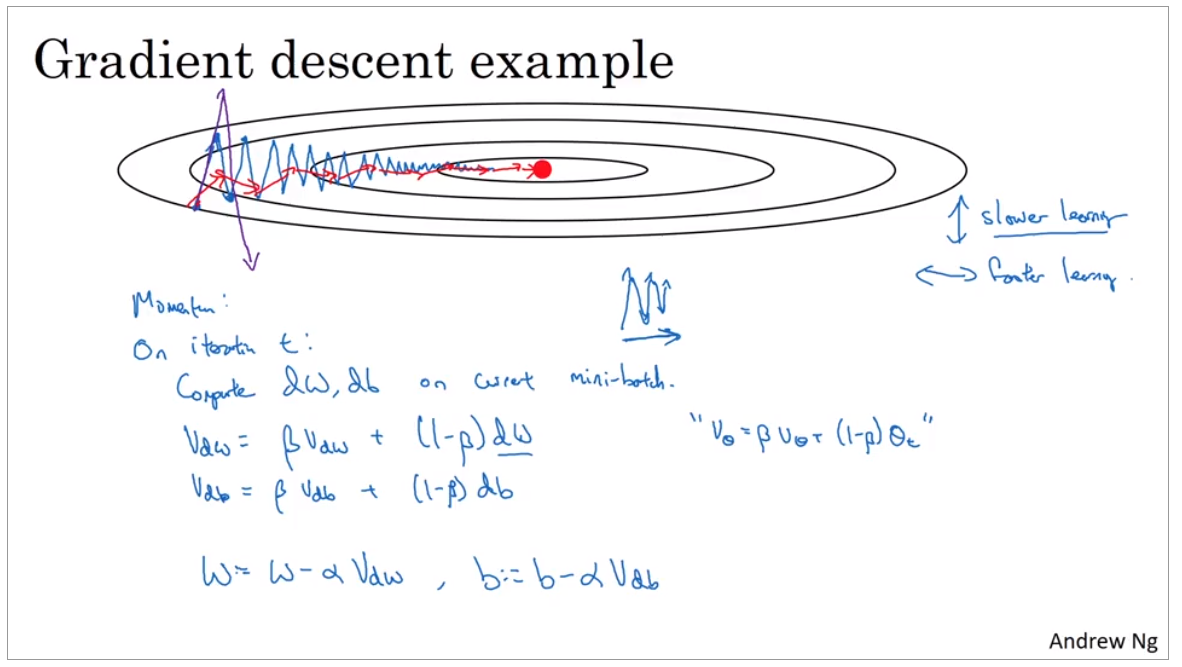 Gradient descent example
slower learning
faster learning.
Momentum:
On iteration t:
Compute dW, db on current mini-batch.
Vdw = βVdw + (1-β)dW
"Vθ = βVθ + (1-β)θt"
Vdb = βVdb + (1-β)db
W = W - αVdw, b := b - αVdb
Andrew Ng